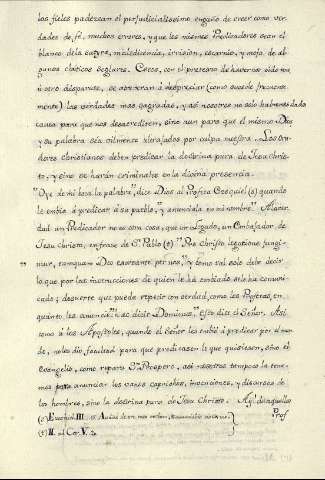 los fieles padezcan el perjudicialissimo engaño de creer como ver-
dades de fè, muchos errores, y que los mismos Predicadores sean el
blanco de la satyra, maledicencia, irrision, escarnio, y mofa de al-
gunos criticos seglares. Estos, con el pretexto de haverse oido uno,
ù otro disparate, se atreveràn à despreciar (como sucede frequente-
mente) las verdades mas sagradas, y asi nosotros no solo havrèmos dado
causa para que nos desacrediten, sino aun para que el mismo Dios
y su palabra sea vilmente ultrajados por culpa nuestra. Los Ora-
dores Christianos deben predicar la doctrina pura de Jesu Chris-
to, y sino se haràn criminales en la divina presencia.
"Oye de mi boca la palabra", dice Dios al Profeta Ezequiel (s) quando
le embia à predicar à su pueblo, "y anunciala en mi nombre". A la ver-
dad un Predicador no es otra cosa, que un Legado, un Embajador de
Jesu Christo, en frase de Sn. Pablo (t) "Pro Christo legatione fungi-
" mur, tamquam Deo exortante per nos", y como tal solo debe decir
lo que por las instrucciones de quien le ha embiado se le ha comuni-
cado; desuerte que pueda repetir con verdad, como los Profetas, en
quanto les anuncia: Hæc dicit Dominus. Esto dice el Señor. Asi
como à los Apostoles, quando el Señor les embiò à predicar por el mun-
do, no les diò facultad para que predicasen lo que quisiesen, sino el
Evangelio, como reparò Sn. Prospero, asi nosotros tampoco la tene-
mos para anunciar los vanos caprichos, invenciones, y discursos de
los hombres, sino la doctrina pura de Jesu Christo. Aquellos
(s) Ezechiel. III. Audies de ore meo verbum,
(t) II. ad Cor. V.
Prof